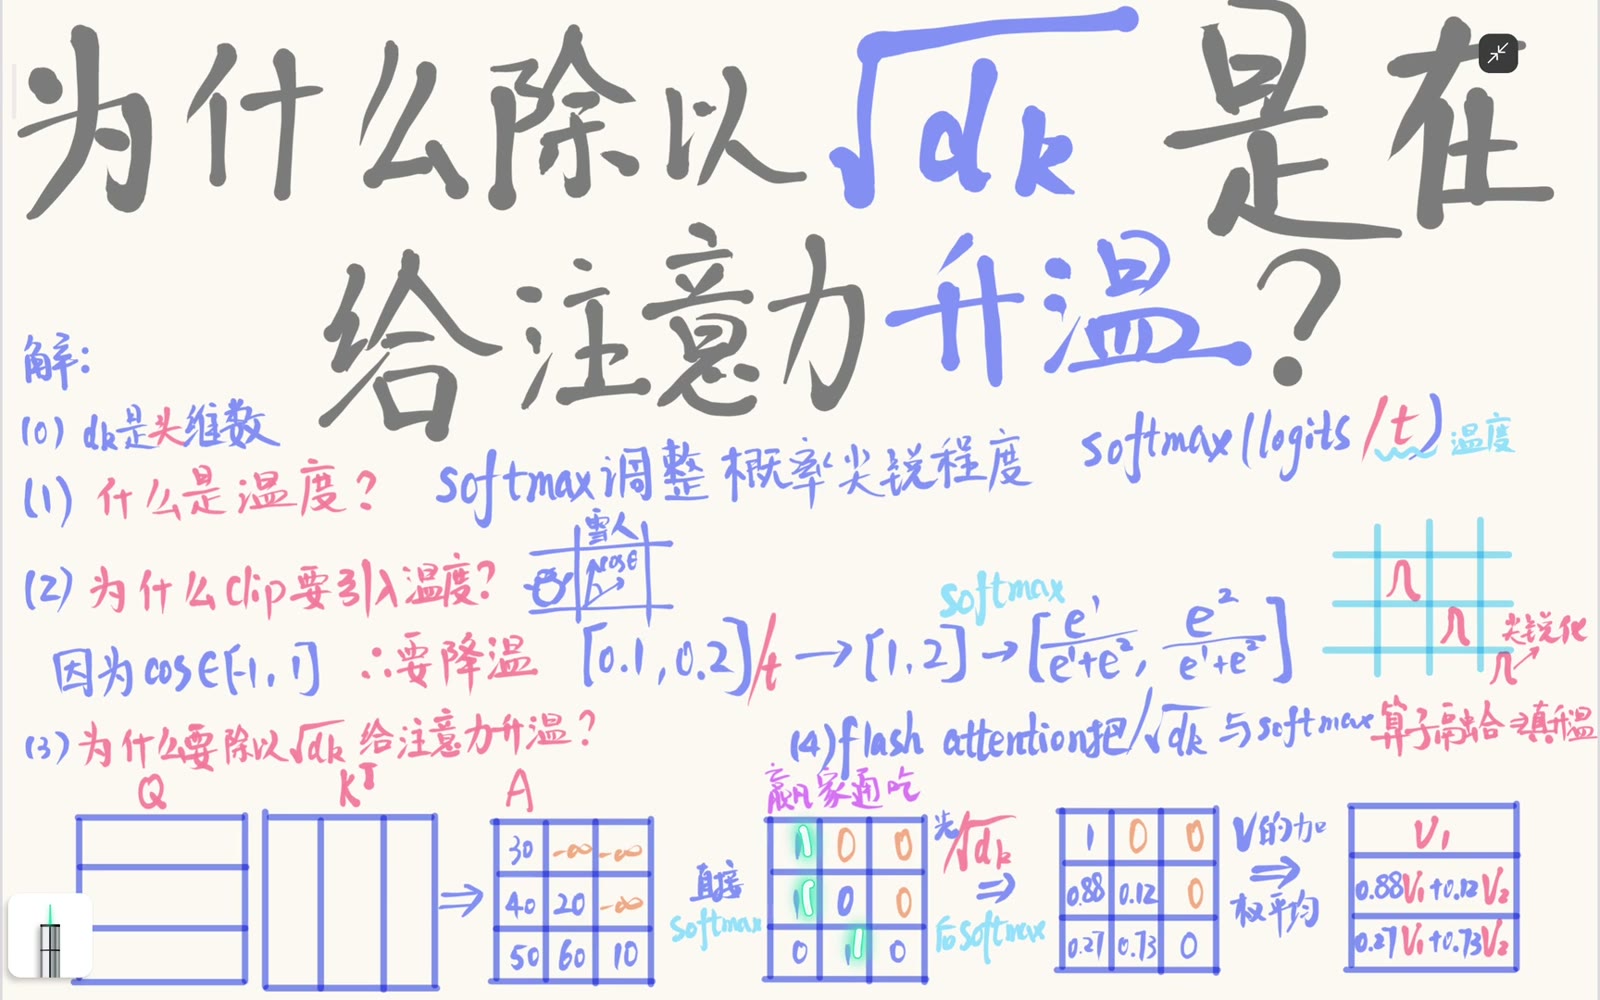 为什么除以√dk 是在
给注意力升温?
解:
(0) dk是头维数
(1) 什么是温度? softmax调整概率尖锐程度 softmax(logits/t) 温度
雪人
cosθ
(2) 为什么Clip要引入温度?
softmax
因为cos∈[-1, 1] ∴要降温 [0.1, 0.2]/t → [1, 2] → [e¹/(e¹+e²), e²/(e¹+e²)]
尖锐化
(3) 为什么要除以√dk 给注意力升温?
(4) flash attention把/√dk 与softmax算子融合 ≠真升温
Q Kᵀ A
赢家通吃
30 -∞ -∞
40 20 -∞
50 60 10
直接
softmax
1 0 0
1 0 0
0 1 0
先/√dk
⇒
后softmax
1 0 0
0.88 0.12 0
0.27 0.73 0
V的加
⇒
权平均
V₁
0.88V₁+0.12V₂
0.27V₁+0.73V₂